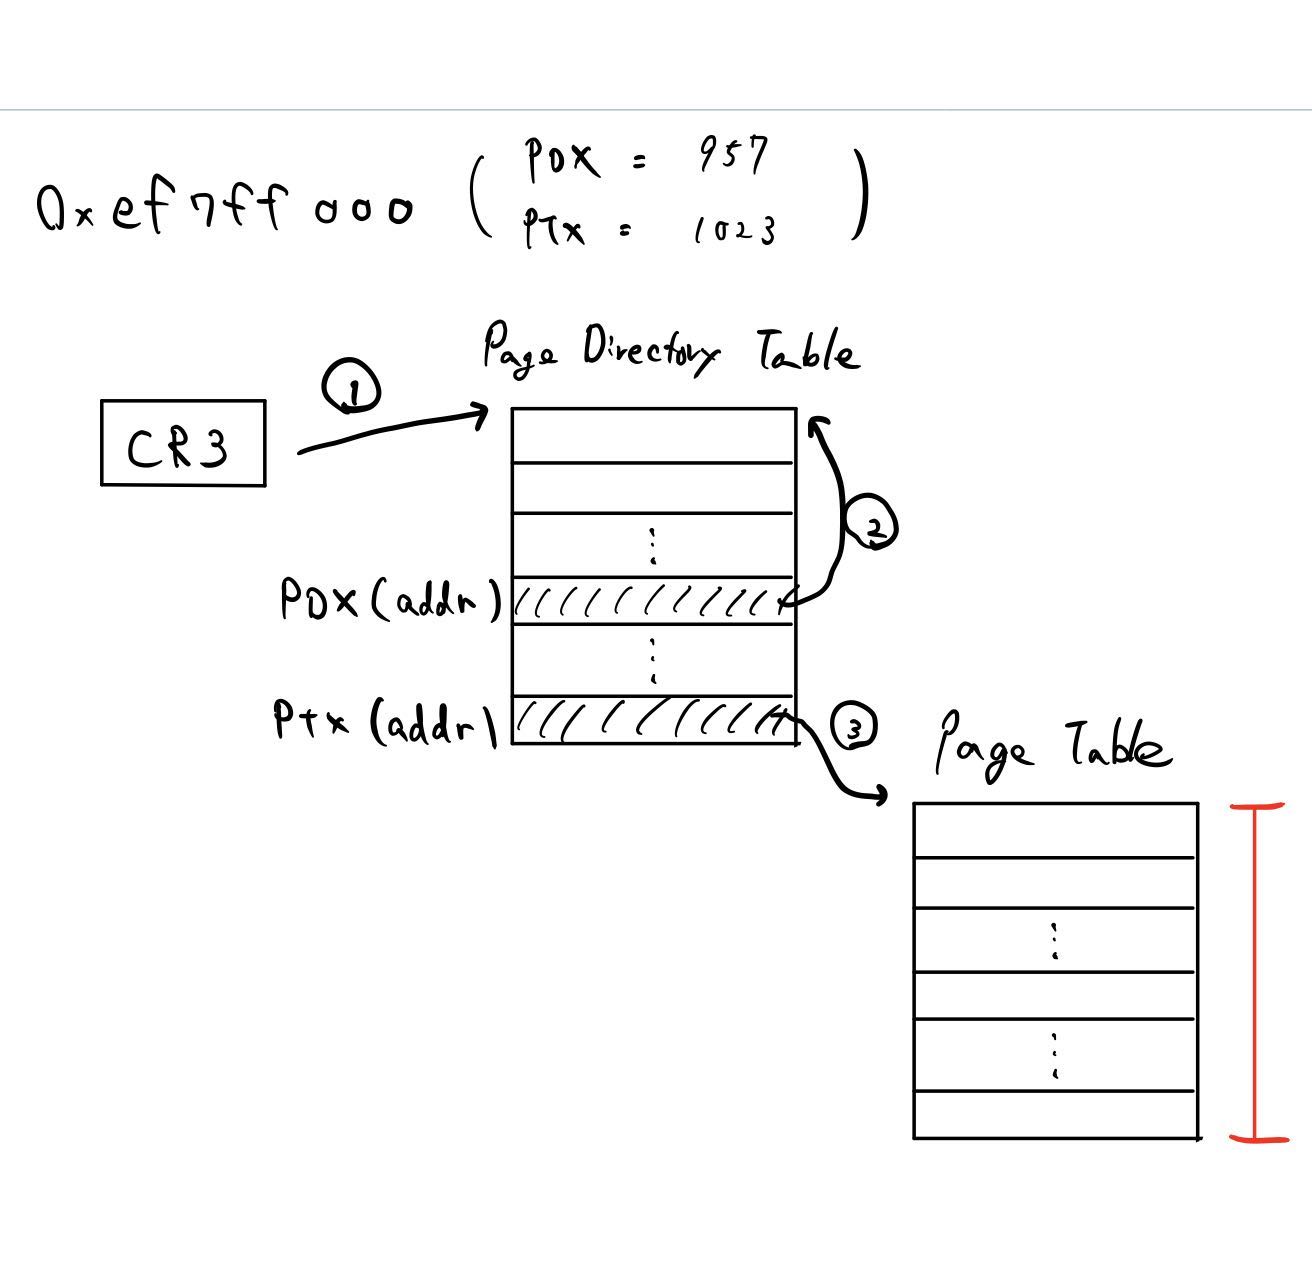 0xef7ff000 ( PDX = 957
PTX = 1023 )
Page Directory Table
1
CR3
2
PDX (addr)
PTX (addr)
3
Page Table